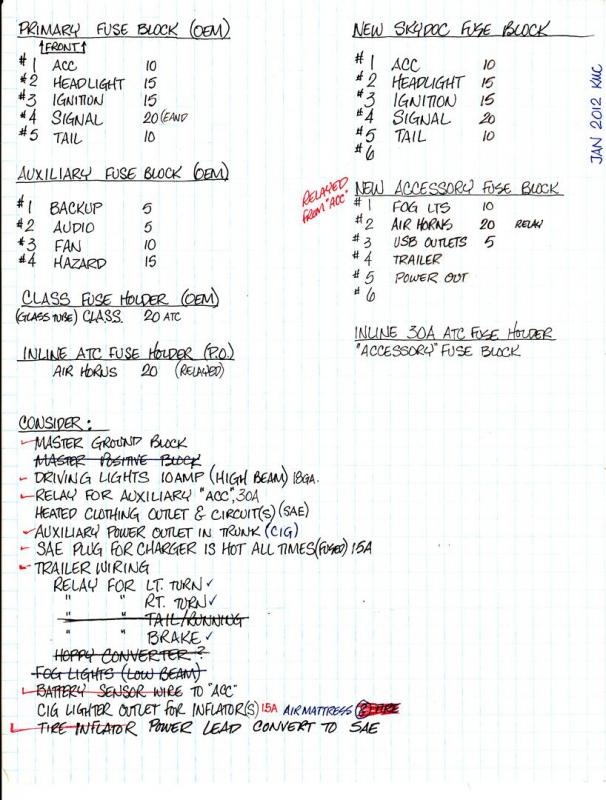 PRIMARY FUSE BLOCK (OEM)
↑FRONT↑
#1 ACC 10
#2 HEADLIGHT 15
#3 IGNITION 15
#4 SIGNAL 20 (EAND
#5 TAIL 10
AUXILIARY FUSE BLOCK (OEM)
#1 BACKUP 5
#2 AUDIO 5
#3 FAN 10
#4 HAZARD 15
CLASS FUSE HOLDER (OEM)
(GLASS TUBE) CLASS. 20 ATC
INLINE ATC FUSE HOLDER (P.O.)
AIR HORNS 20 (RELAYED)
NEW SKYDOC FUSE BLOCK
#1 ACC 10
#2 HEADLIGHT 15
#3 IGNITION 15
#4 SIGNAL 20
#5 TAIL 10
#6
JAN 2012 KMC
RELAYED
FROM "ACC"
NEW ACCESSORY FUSE BLOCK
#1 FOG LTS 10
#2 AIR HORNS 20 RELAY
#3 USB OUTLETS 5
#4 TRAILER
#5 POWER OUT
#6
INLINE 30A ATC FUSE HOLDER
"ACCESSORY" FUSE BLOCK
CONSIDER:
MASTER GROUND BLOCK
MASTER POSITIVE BLOCK
DRIVING LIGHTS 10AMP (HIGH BEAM) 18GA.
RELAY FOR AUXILIARY "ACC", 30A
HEATED CLOTHING OUTLET & CIRCUIT(S) (SAE)
AUXILIARY POWER OUTLET IN TRUNK (CIG)
SAE PLUG FOR CHARGER IS HOT ALL TIMES (FUSED) 15A
TRAILER WIRING
RELAY FOR LT. TURN ✓
" " RT. TURN ✓
" " TAIL/RUNNING
" " BRAKE ✓
HOPPY CONVERTER?
FOG LIGHTS (LOW BEAM)
BATTERY SENSOR WIRE TO "ACC"
CIG LIGHTER OUTLET FOR INFLATOR(S) 15A AIR MATTRESS
TIRE INFLATOR POWER LEAD CONVERT TO SAE